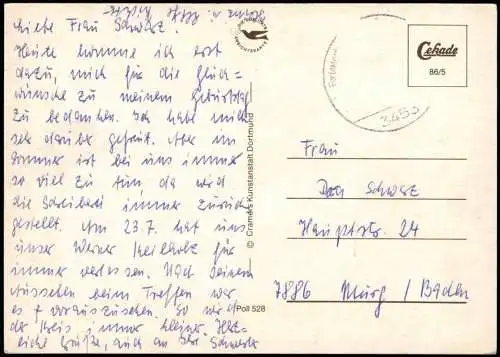 Liebe Frau Schwarz.
Heute komme ich erst
dazu, mich für die Glück=
wünsche zu meinem Geburtstag
zu bedanken. Ich habe mich
sehr darüber gefreut. Aber im
Sommer ist bei uns immer
so viel zu tun, da wird
die Schreiberei immer zurück
gestellt. Am 23.7. hat uns
unser Werner für
immer verlassen. Nach seinem
Aussehen beim Treffen war
es vorauszusehen. So wird
der Kreis immer kleiner. Herz=
liche Grüße, auch an Ihre Schwester
© Cramers Kunstanstalt Dortmund
Poll 528
Cekade
86/5
3453
Frau
Schwarz
Hauptstr. 24
7886 Murg / Baden